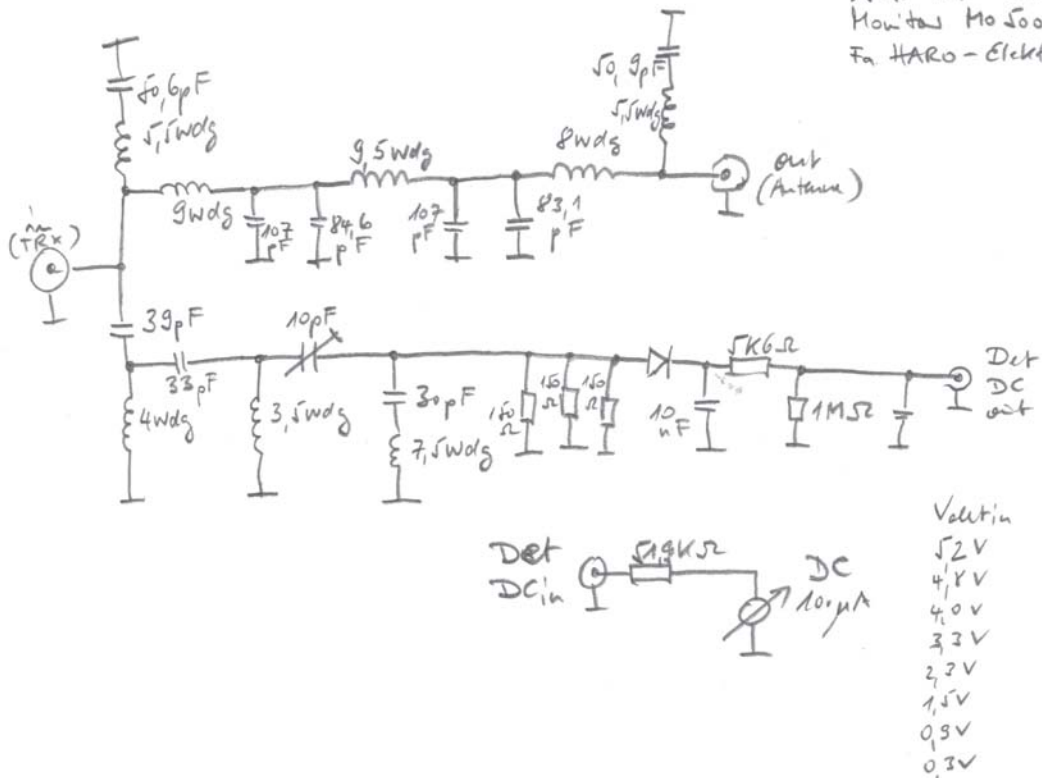 Monitor Mo 500
Fa. HARO - Elekt
50,6pF
5,5wdg
50,9pF
5,5wdg
9wdg
107 pF
84,6 pF
9,5wdg
107 pF
83,1 pF
8wdg
out
(Antenne)
in
(TRx)
39pF
33pF
10pF
4wdg
3,5wdg
30pF
7,5wdg
150 Ω
150 Ω
150 Ω
10 nF
5K6Ω
1MΩ
Det
DC
out
Det
DC in
51,9KΩ
DC
100µA
5,2V
4,8V
4,0V
3,3V
2,3V
1,5V
0,9V
0,3V